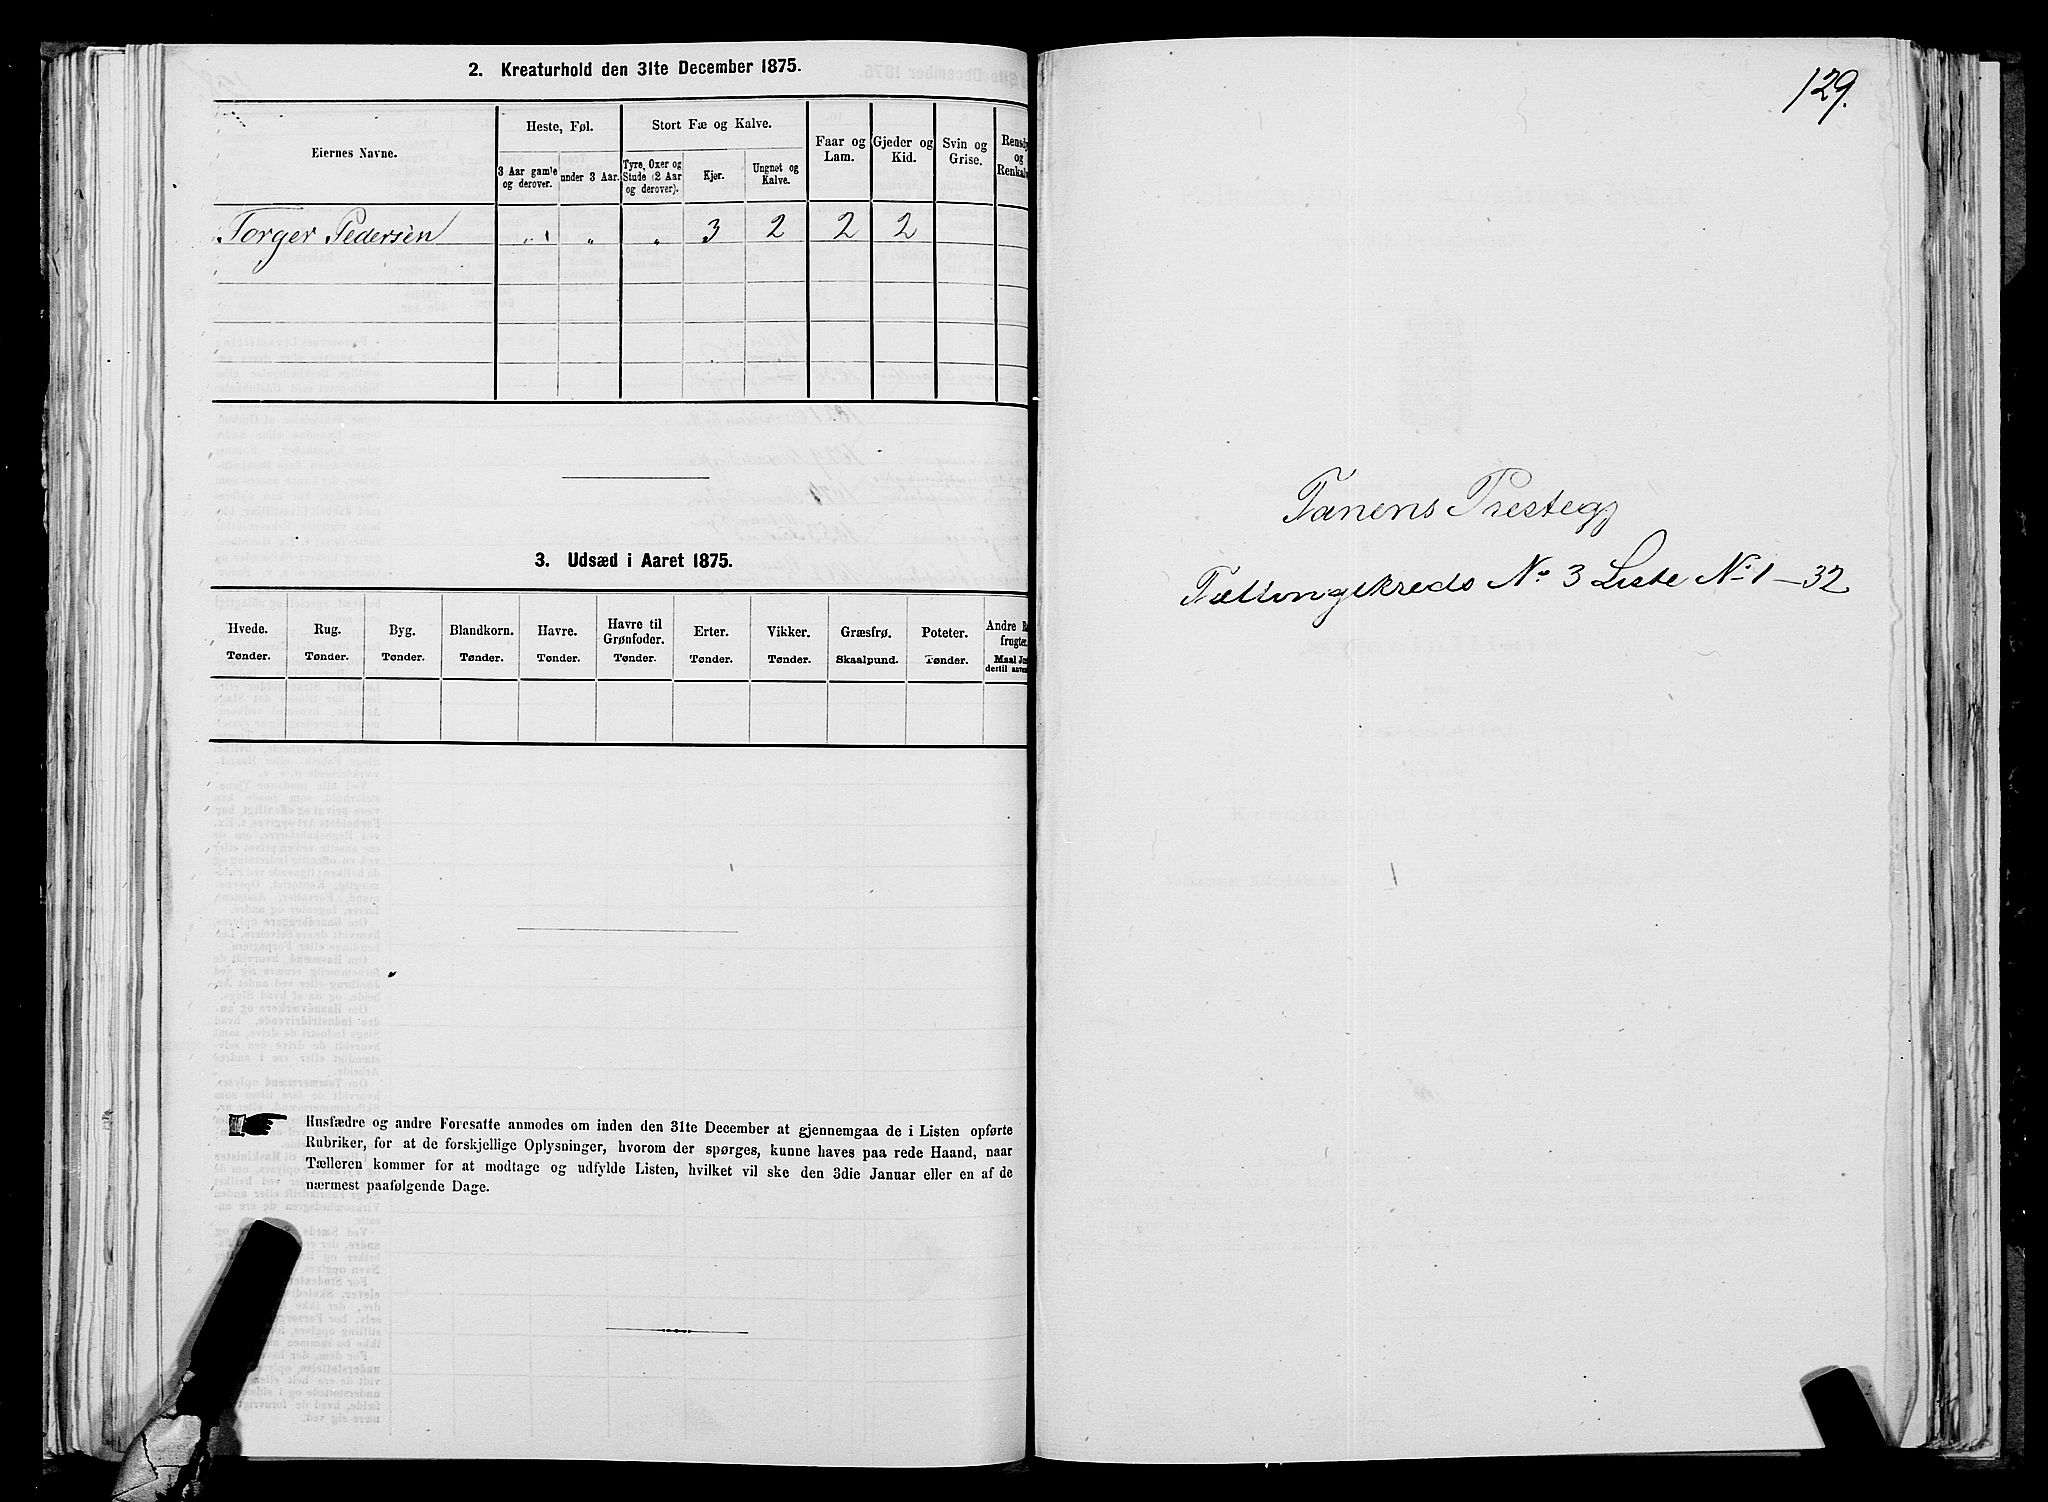 2. Kreaturhold den 31te December 1875.
Eiernes Navne.
Heste, Føl.
Stort Fæ og Kalve.
Faar og Lam.
Gjeder og Kid.
Svin og Grise.
Rensdy
og
Renkalv
3 Aar gamle og derover.
under 3 Aar.
Tyre, Oxer og Stude (2 Aar og derover).
Kjør.
Ungnøt og Kalve.
Torger Pedersen " " " 3 2 2 2
3. Udsæd i Aaret 1875.
Hvede. Rug. Byg. Blandkorn. Havre. Havre til Grønfoder. Erter. Vikker. Græsfrø. Poteter. Andre
frugter.
Tønder. Tønder. Tønder. Tønder. Tønder. Tønder. Tønder. Tønder. Skaalpund. Tønder. Maal
dertil
Husfædre og andre Foresatte anmodes om inden den 31te December at gjennemgaa de i Listen opførte
Rubriker, for at de forskjellige Oplysninger, hvorom der spørges, kunne haves paa rede Haand, naar
Tælleren kommer for at modtage og udfylde Listen, hvilket vil ske den 3die Januar eller en af de
nærmest paafølgende Dage.
129.
Tanens Prestegj
Tællingskreds No 3 Liste No 1-32